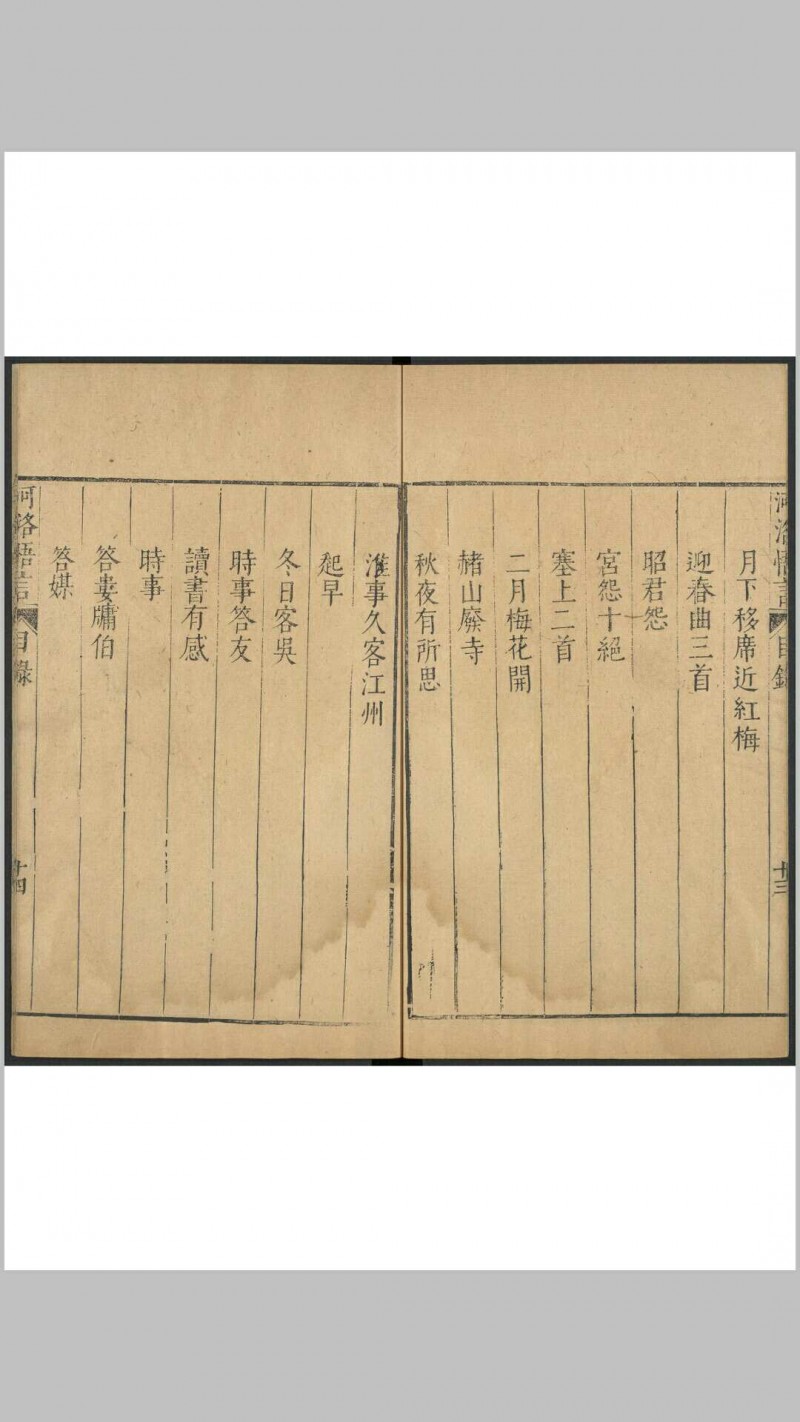 月下移席近紅梅
迎春曲三首
昭君怨
宮怨十絕
塞上二首
二月梅花開
赭山廢寺
秋夜有所思
淮事久客江州
起早
冬日客吳
時事答友
讀書有感
時事
答婁牗伯
答媒
河洛悟言 目錄 十四